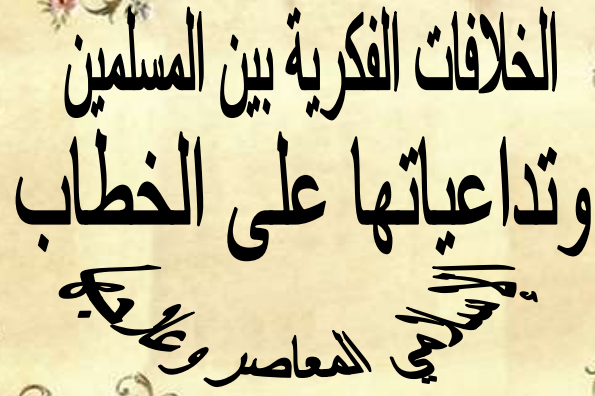 الخلافات الفكرية بين المسلمين
وتداعياتها على الخطاب
الإسلامي المعاصر وعلاجها